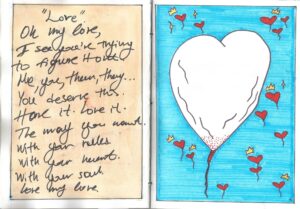 "Love"
Oh my love,
I see you're trying
to figure
Me, you, them, they...
You deserve this.
Have it. Love it.
The way you want.
With your rules
with your
With your soul
love my love